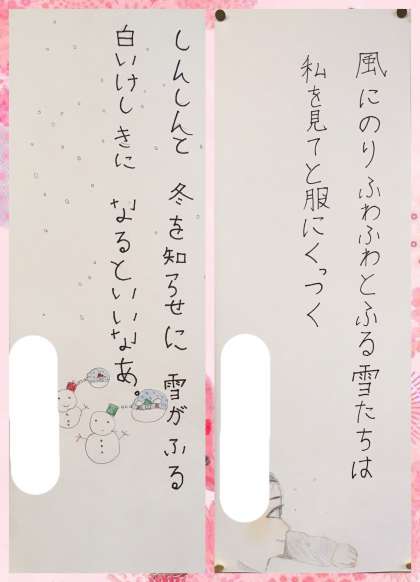 風にのりふわふわとふる雪たちは
私を見てと服にくっつく
しんしんと 冬を知らせに 雪がふる
白いけしきに なるといいなあ。